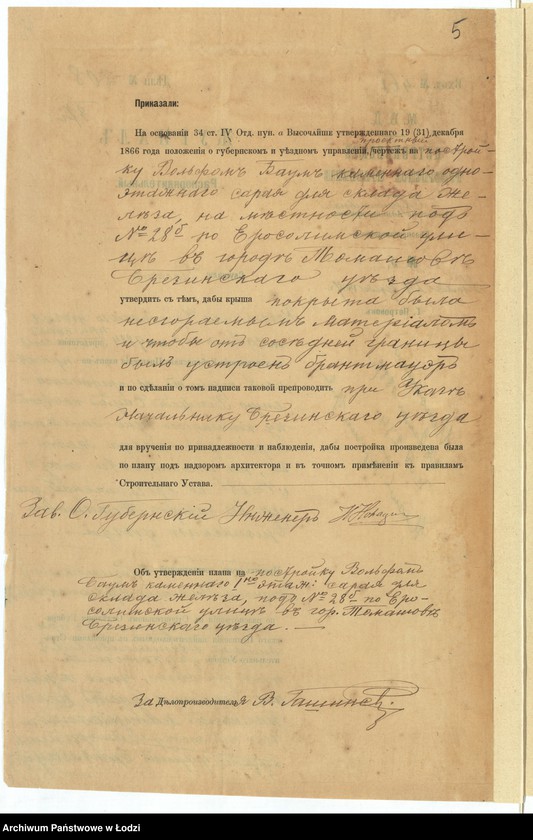 5
Приказали:
На основаніи 34 ст. IV Отд. пун. а Высочайше утвержденнаго 19 (31) декабря
1866 года положенія о губернскомъ и уѣздномъ управленіи, чертежъ на построй-
проектный
ку Вольфомъ Баумъ каменнаго одно-
этажнаго сарая для склада же-
лѣза, на мѣстности подъ
№ 28б по Еросолимской ули-
цѣ въ городѣ Томашовѣ
Брезинскаго уѣзда
утвердить съ тѣмъ, дабы крыша покрыта была
несгораемымъ матеріаломъ
и чтобы отъ сосѣдней границы
былъ устроенъ брантмауэръ
и по сдѣланіи о томъ надписи таковой препроводить при Указѣ
Начальнику Брезинскаго уѣзда
для врученія по принадлежности и наблюденія, дабы постройка произведена была
по плану подъ надзоромъ архитектора и въ точномъ примѣненіи къ правиламъ
Строительнаго Устава.
Зав. О. Губернскій Инженеръ
Объ утвержденіи плана на постройку Вольфомъ
Баумъ каменнаго 1но этаж: сарая для
склада желѣза, подъ № 28б по Еро-
солимской улицѣ въ гор. Томашовѣ
Брезинскаго уѣзда.
За Дѣлопроизводителя В.
Archiwum Państwowe w Łodzi